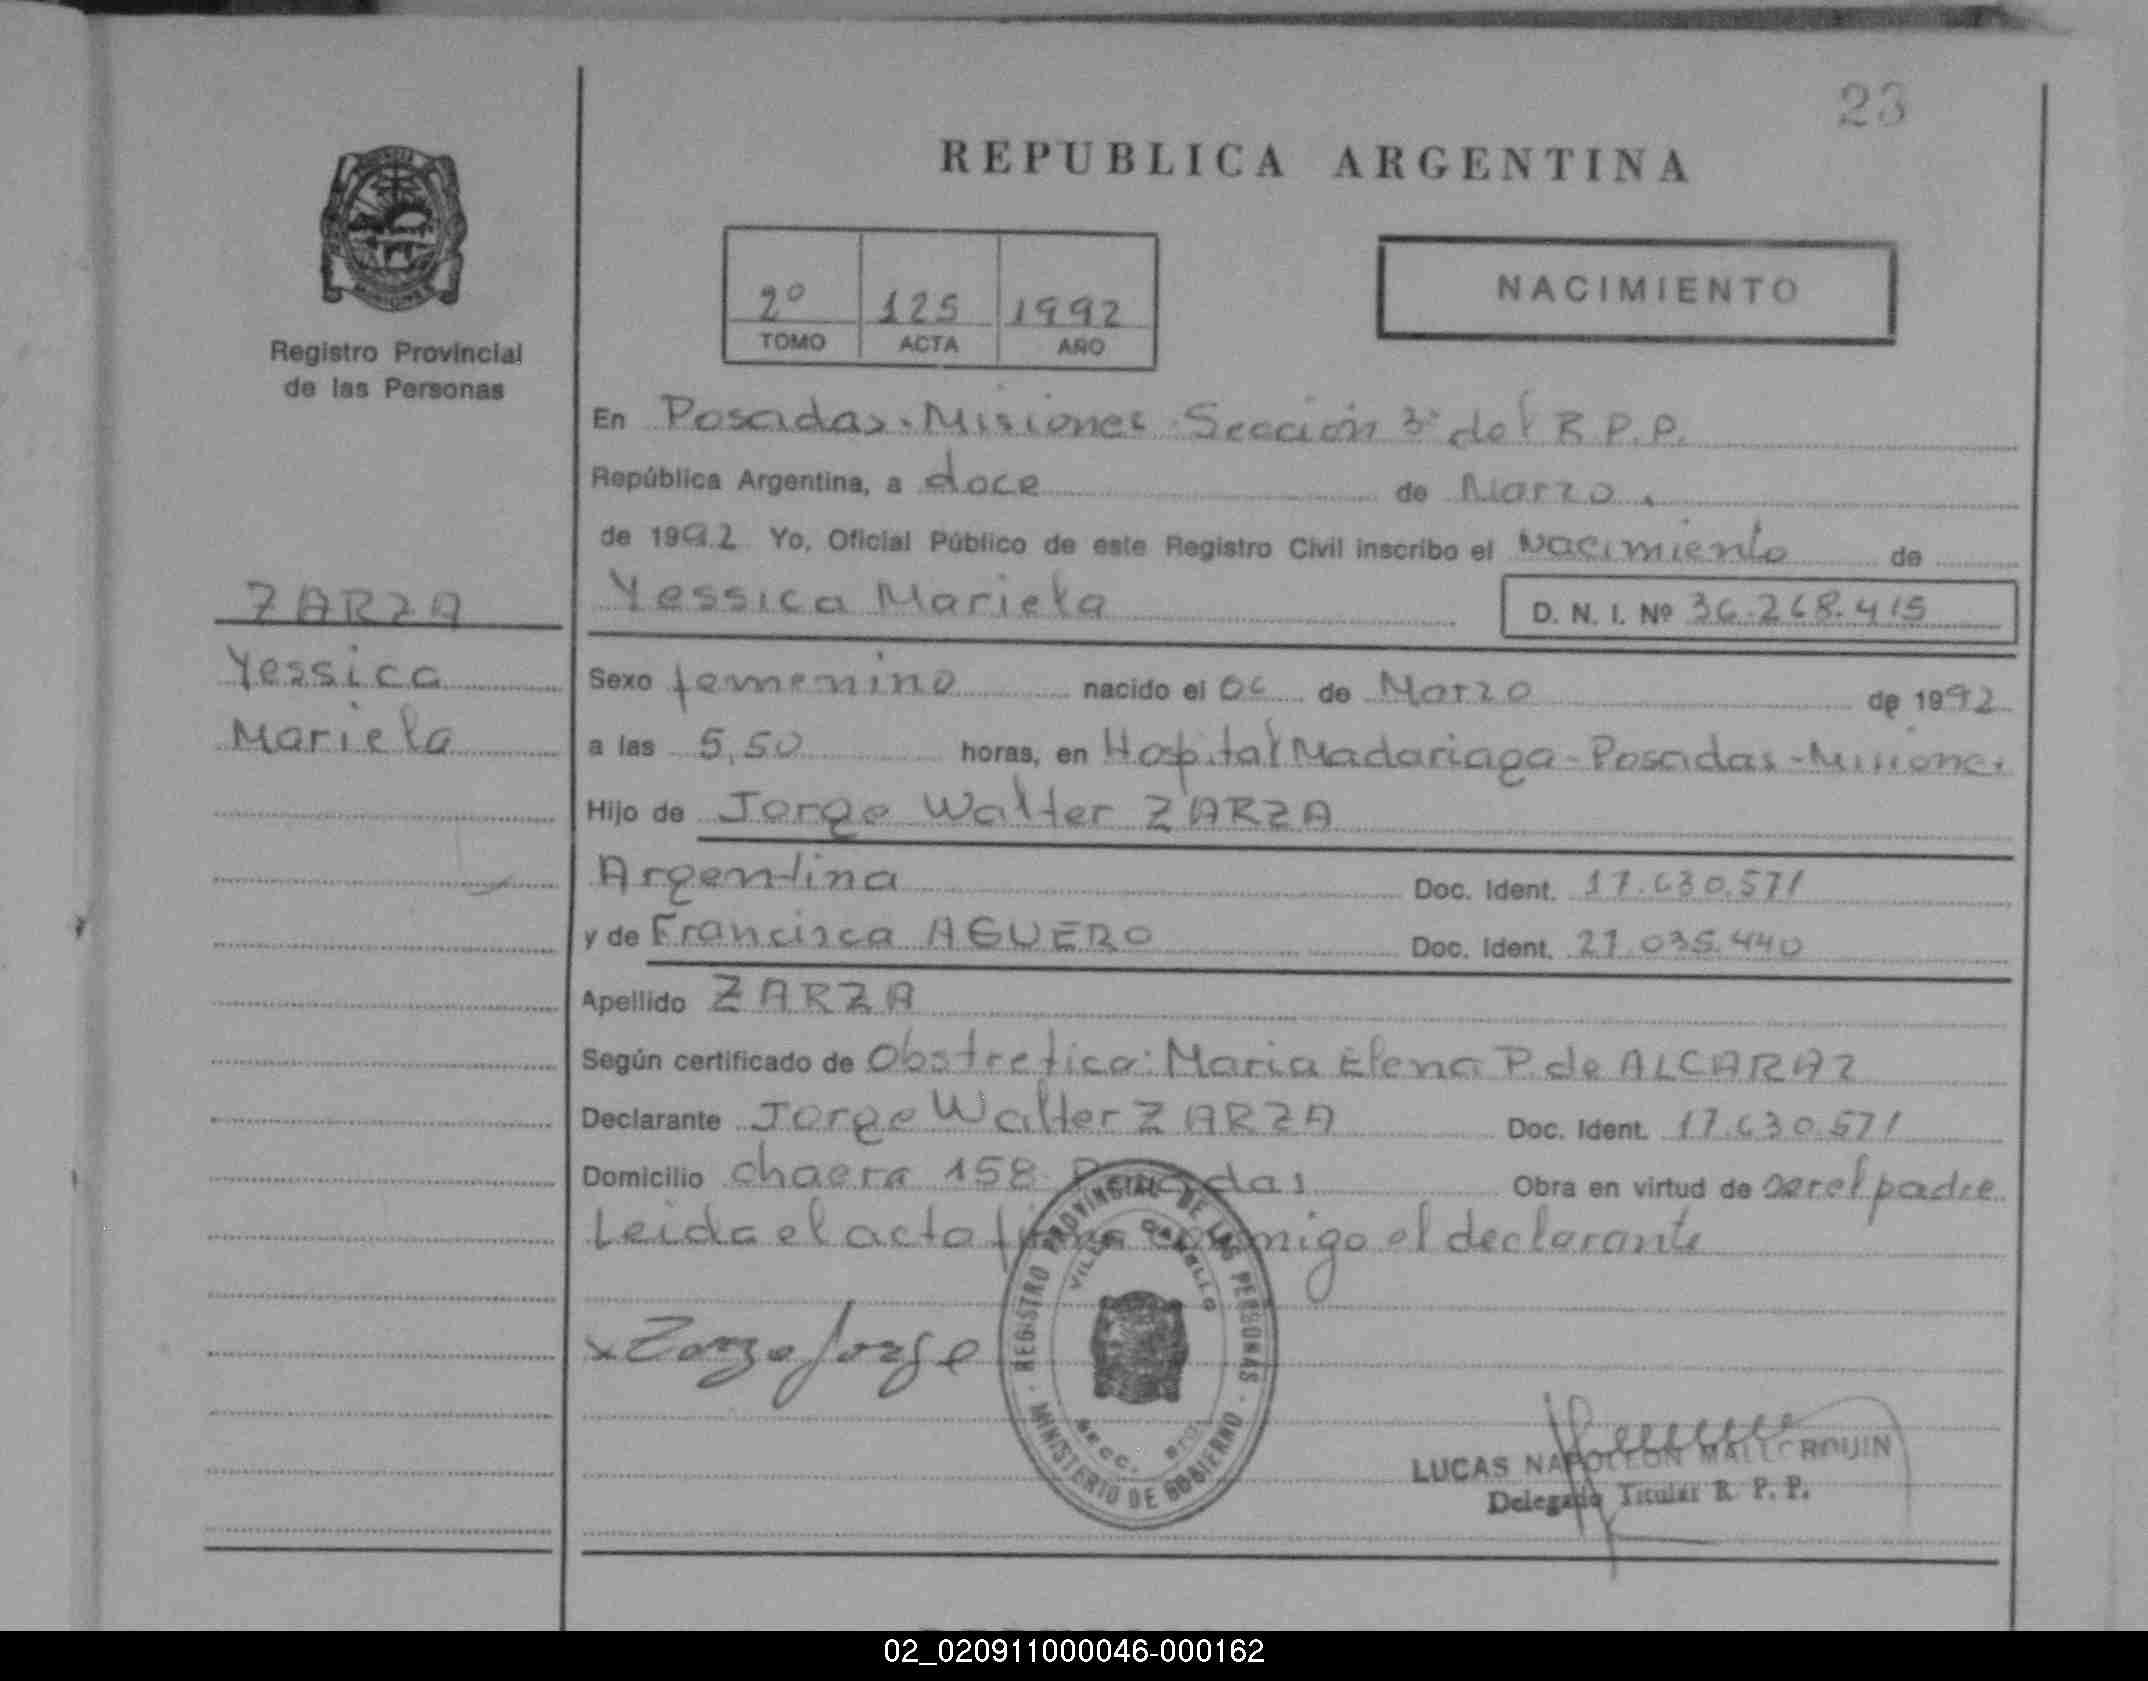 23
REPUBLICA ARGENTINA
2º 125 1992
TOMO ACTA AÑO
NACIMIENTO
Registro Provincial
de las Personas
En Posadas-Misiones Sección 3ª del R.P.P.
República Argentina, a doce de Marzo.
de 1992 Yo, Oficial Público de este Registro Civil inscribo el Nacimiento de
Yessica Mariela D. N. I. Nº 36.268.415
ZARZA
Yessica
Mariela
Sexo femenino nacido el 06 de Marzo de 1992
a las 5,50 horas, en Hospital Madariaga-Posadas-Misiones
Hijo de Jorge Walter ZARZA
Argentina Doc. Ident. 17.630.571
y de Francisca AGUERO Doc. Ident. 21.035.440
Apellido ZARZA
Según certificado de Obstretica: Maria Elena P. de ALCARAZ
Declarante Jorge Walter ZARZA Doc. Ident. 17.630.571
Domicilio chacra 158 Posadas Obra en virtud de ser el padre
Leida el acta firma conmigo el declarante
x Zarza Jorge
REGISTRO PROVINCIAL DE LAS PERSONAS
MINISTERIO DE GOBIERNO
SECC.
LUCAS NAPOLEON MALLORQUIN
Delegado Titular R. P. P.
02_020911000046-000162